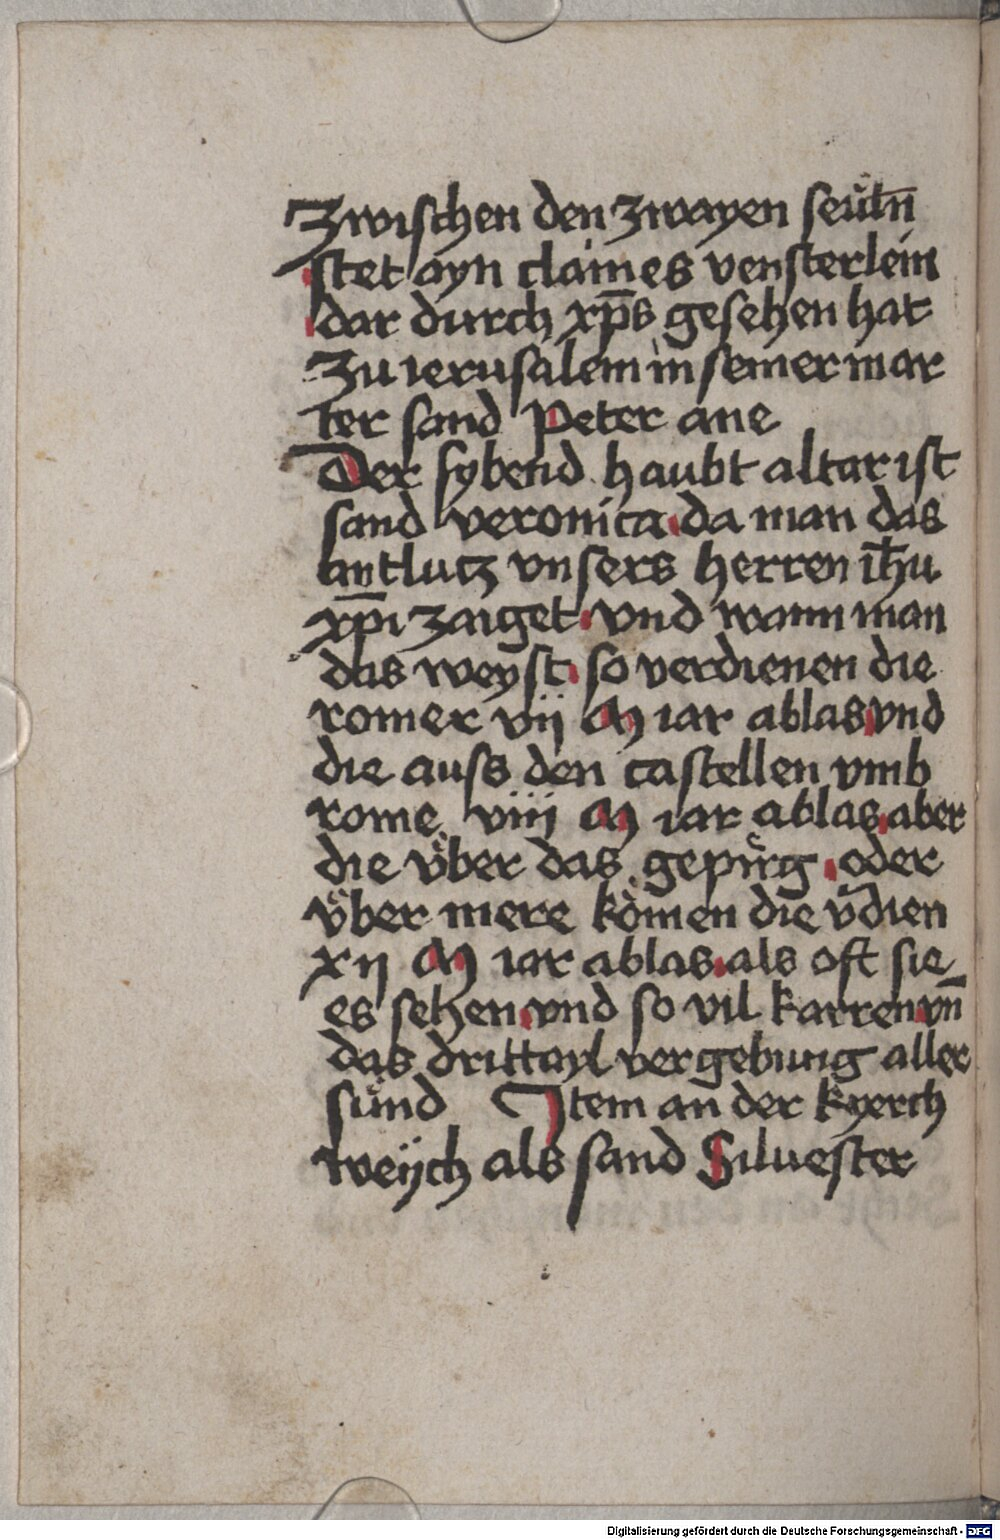 Zwischen den zwayen seůln̄
stet ayn claines vensterlein
dar durch xp̄s gesehen hat
Zu ierusalem in seiner mar
ter sand Peter ane
Der sybend haubt altar ist
sand veronica da man das
antlutz vnsers herren ih̄u
xp̄i zaiget vnd wann man
das weyst so verdienen die
romer vij M iar ablas vnd
die auss den castellen vmb
rome viij M iar ablas aber
die vͤber das gepirg oder
vͤber mere kömen die v̄dien
xij M iar ablas als oft sie
es sehen vnd so vil karren vn̄
das drittayl vergebung aller
sůnd Item an der kyerch
weÿch als sand Siluester
Digitalisierung gefördert durch die Deutsche Forschungsgemeinschaft - DFG